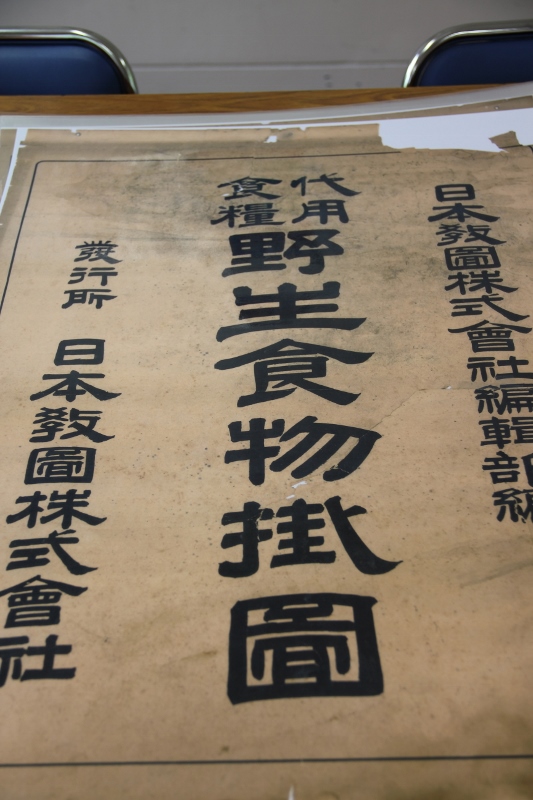 日本教圖株式會社編輯部編
代用食糧
野生食物掛圖
發行所 日本教圖株式會社